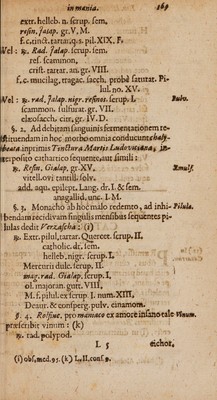 in mania. 169
extr. helleb. n. scrup. sem.
resin. jalap. gr. V. M.
f. c. tinct. tartar. q. s. pil. XIX. F.
Vel: ℞. Rad. Jalap. scrup. sem.
ref. scammon.
crist. tartar. an. gr. VIII.
f. c. mucilag. tragac. sacch. probè satitrat. Pi-
lul. no. XV.
Vel: ℞. rad. Jalap. nigr. resinos. scrup. I. Pulv.
scammon. sulfurat. gr. VII.
elæosacch. citr. gr. IV. D.
§. 2. Ad debitam sanguinis fermentationem re-
stituendam in hoc morbo omnia conducunt
in primis Tinctura Martis Ludoviciana, in-
terposito cathartico sequente, aut simili:
℞. Resin. Gialap. gr. XV. Emulf.
vitell. ovi tantill. solv.
add. aqu. epilept. Lang. dr. I. & sem.
anagallid. unc. I. M.
§. 3. Monacho ab hoc malo redemto, ad inhi- Pilulæ.
bendam recidivam singulis mensibus sequentes pi-
lulas dedit Verzascha: (i)
℞. Extr. pilul. tartar. Quercet. scrup. II.
catholic. dr. sem.
helleb. nigr. scrup. I.
Mercurii dulc. scrup. II.
mag. rad. Gialap. scrup. I.
ol. majoran. gutt. VIII.
M. f. pilul. ex scrup I. num. XIII,
Deaur. & consperg. pulv. cinamom.
§. 4. Rolfinc. pro maniaco ex amore insano tale Vinum.
præscribit vinum: (k)
℞. rad. polypod.
I. 5 eichor.
(i) obs. med. 95. (k) L. II. cons. 9.